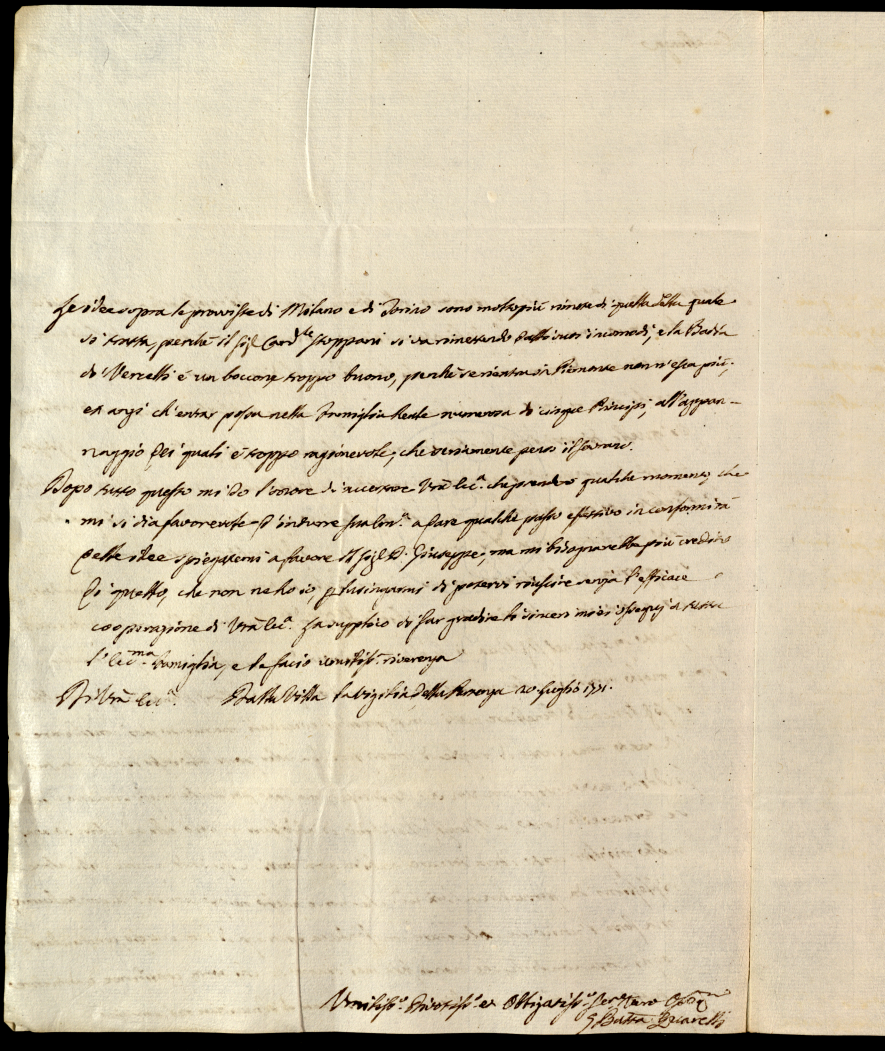 Le idee sopra le provviste di Milano e di Torino sono molto più rimote di quella della quale
si tratta, perchè il Sig.r Card.le Stoppani si va rimettendo dalli suoi incomodi, e la Badia
di Vercelli è un boccone troppo buono, perchè se rientra in Piemonte non n'esca più,
et anzi ch'entrar possa nella Famiglia Reale numerosa di cinque Principi, all'appan-
naggio dei quali è troppo ragionevole, che seriamente pensi il Sovrano.
Dopo tutto questo mi do l'onore di accertare V'ra Ecc.a che prenderò qualche momento, che
mi si dia favorevole d'indurre a fare qualche passo effettivo in conformità
delle idee spiegatemi a favore del Sig.r D. Giuseppe, ma mi bisognarebbe più credito
di quello, che non ne ho io, p lusingarmi di potervi riuscire senza l'efficace
cooperazione di V'ra Ecc.a. La supplico di far gradire li sinceri miei ossequj a tutta
l'Ecc.ma Famiglia, e le facio umiliss.a riverenza
Di V'ra Ecc.a. Dalla Villa la Vigilia della Partenza 20 Luglio 1771.
Umiliss.o Divotiss.o et Obligatiss.o Ser.e
G Batta